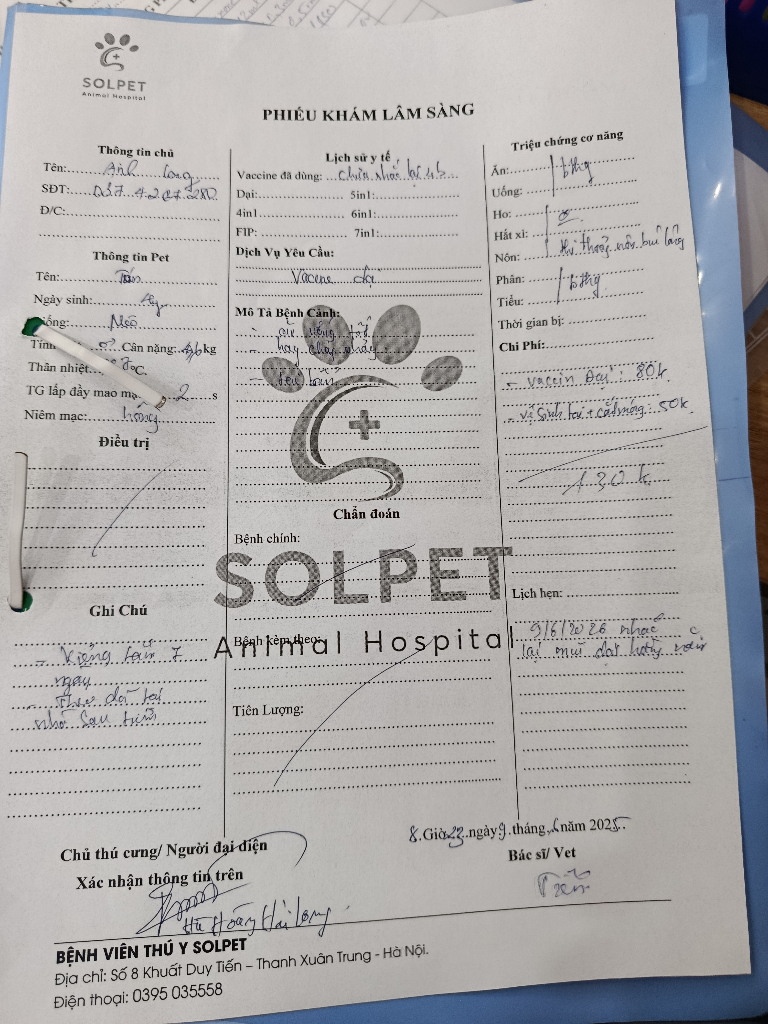 SOLPET
Animal Hospital
PHIẾU KHÁM LÂM SÀNG
Thông tin chủ
Tên: Anh Long
SĐT:
Đ/C:
Thông tin Pet
Tên:
Ngày sinh:
Giống: Mèo
Cân nặng: kg
Thân nhiệt °C.
TG lấp đầy mao mạ 2 s
Niêm mạc: hồng
Điều trị
Ghi Chú
- Kiêng tắm 7
ngày
- Theo dõi tại
nhà sau tiêm
Lịch sử y tế
Vaccine đã dùng: Chưa nhắc lại
Dại: 5in1:
4in1 6in1:
FIP: 7in1:
Dịch Vụ Yêu Cầu:
Vacene dại
Mô Tả Bệnh Cảnh:
- ăn uống tốt
- hay chảy
-
Chẩn đoán
Bệnh chính:
SOLPET
Bệnh kèm theo:
Animal Hospital
Tiên Lượng:
Triệu chứng cơ năng
Ăn: bthg
Uống:
Ho:
Hắt xì:
Nôn: thi thoảng nôn búi lông
Phân: bthg
Tiểu:
Thời gian bị:
Chi Phí:
- vaccin Dại: 80k
- vệ sinh tai + cắt móng: 50k
130k
Lịch hẹn:
9/6/2026 nhắc
lại mũi dại hằng năm
8 Giờ 23 ngày 9 tháng 6 năm 2025
Chủ thú cưng/ Người đại diện
Xác nhận thông tin trên
Bác sĩ/ Vet
Hà Hoàng Hải Long
BỆNH VIÊN THÚ Y SOLPET
Địa chỉ: Số 8 Khuất Duy Tiến – Thanh Xuân Trung - Hà Nội.
Điện thoại: 0395 035558